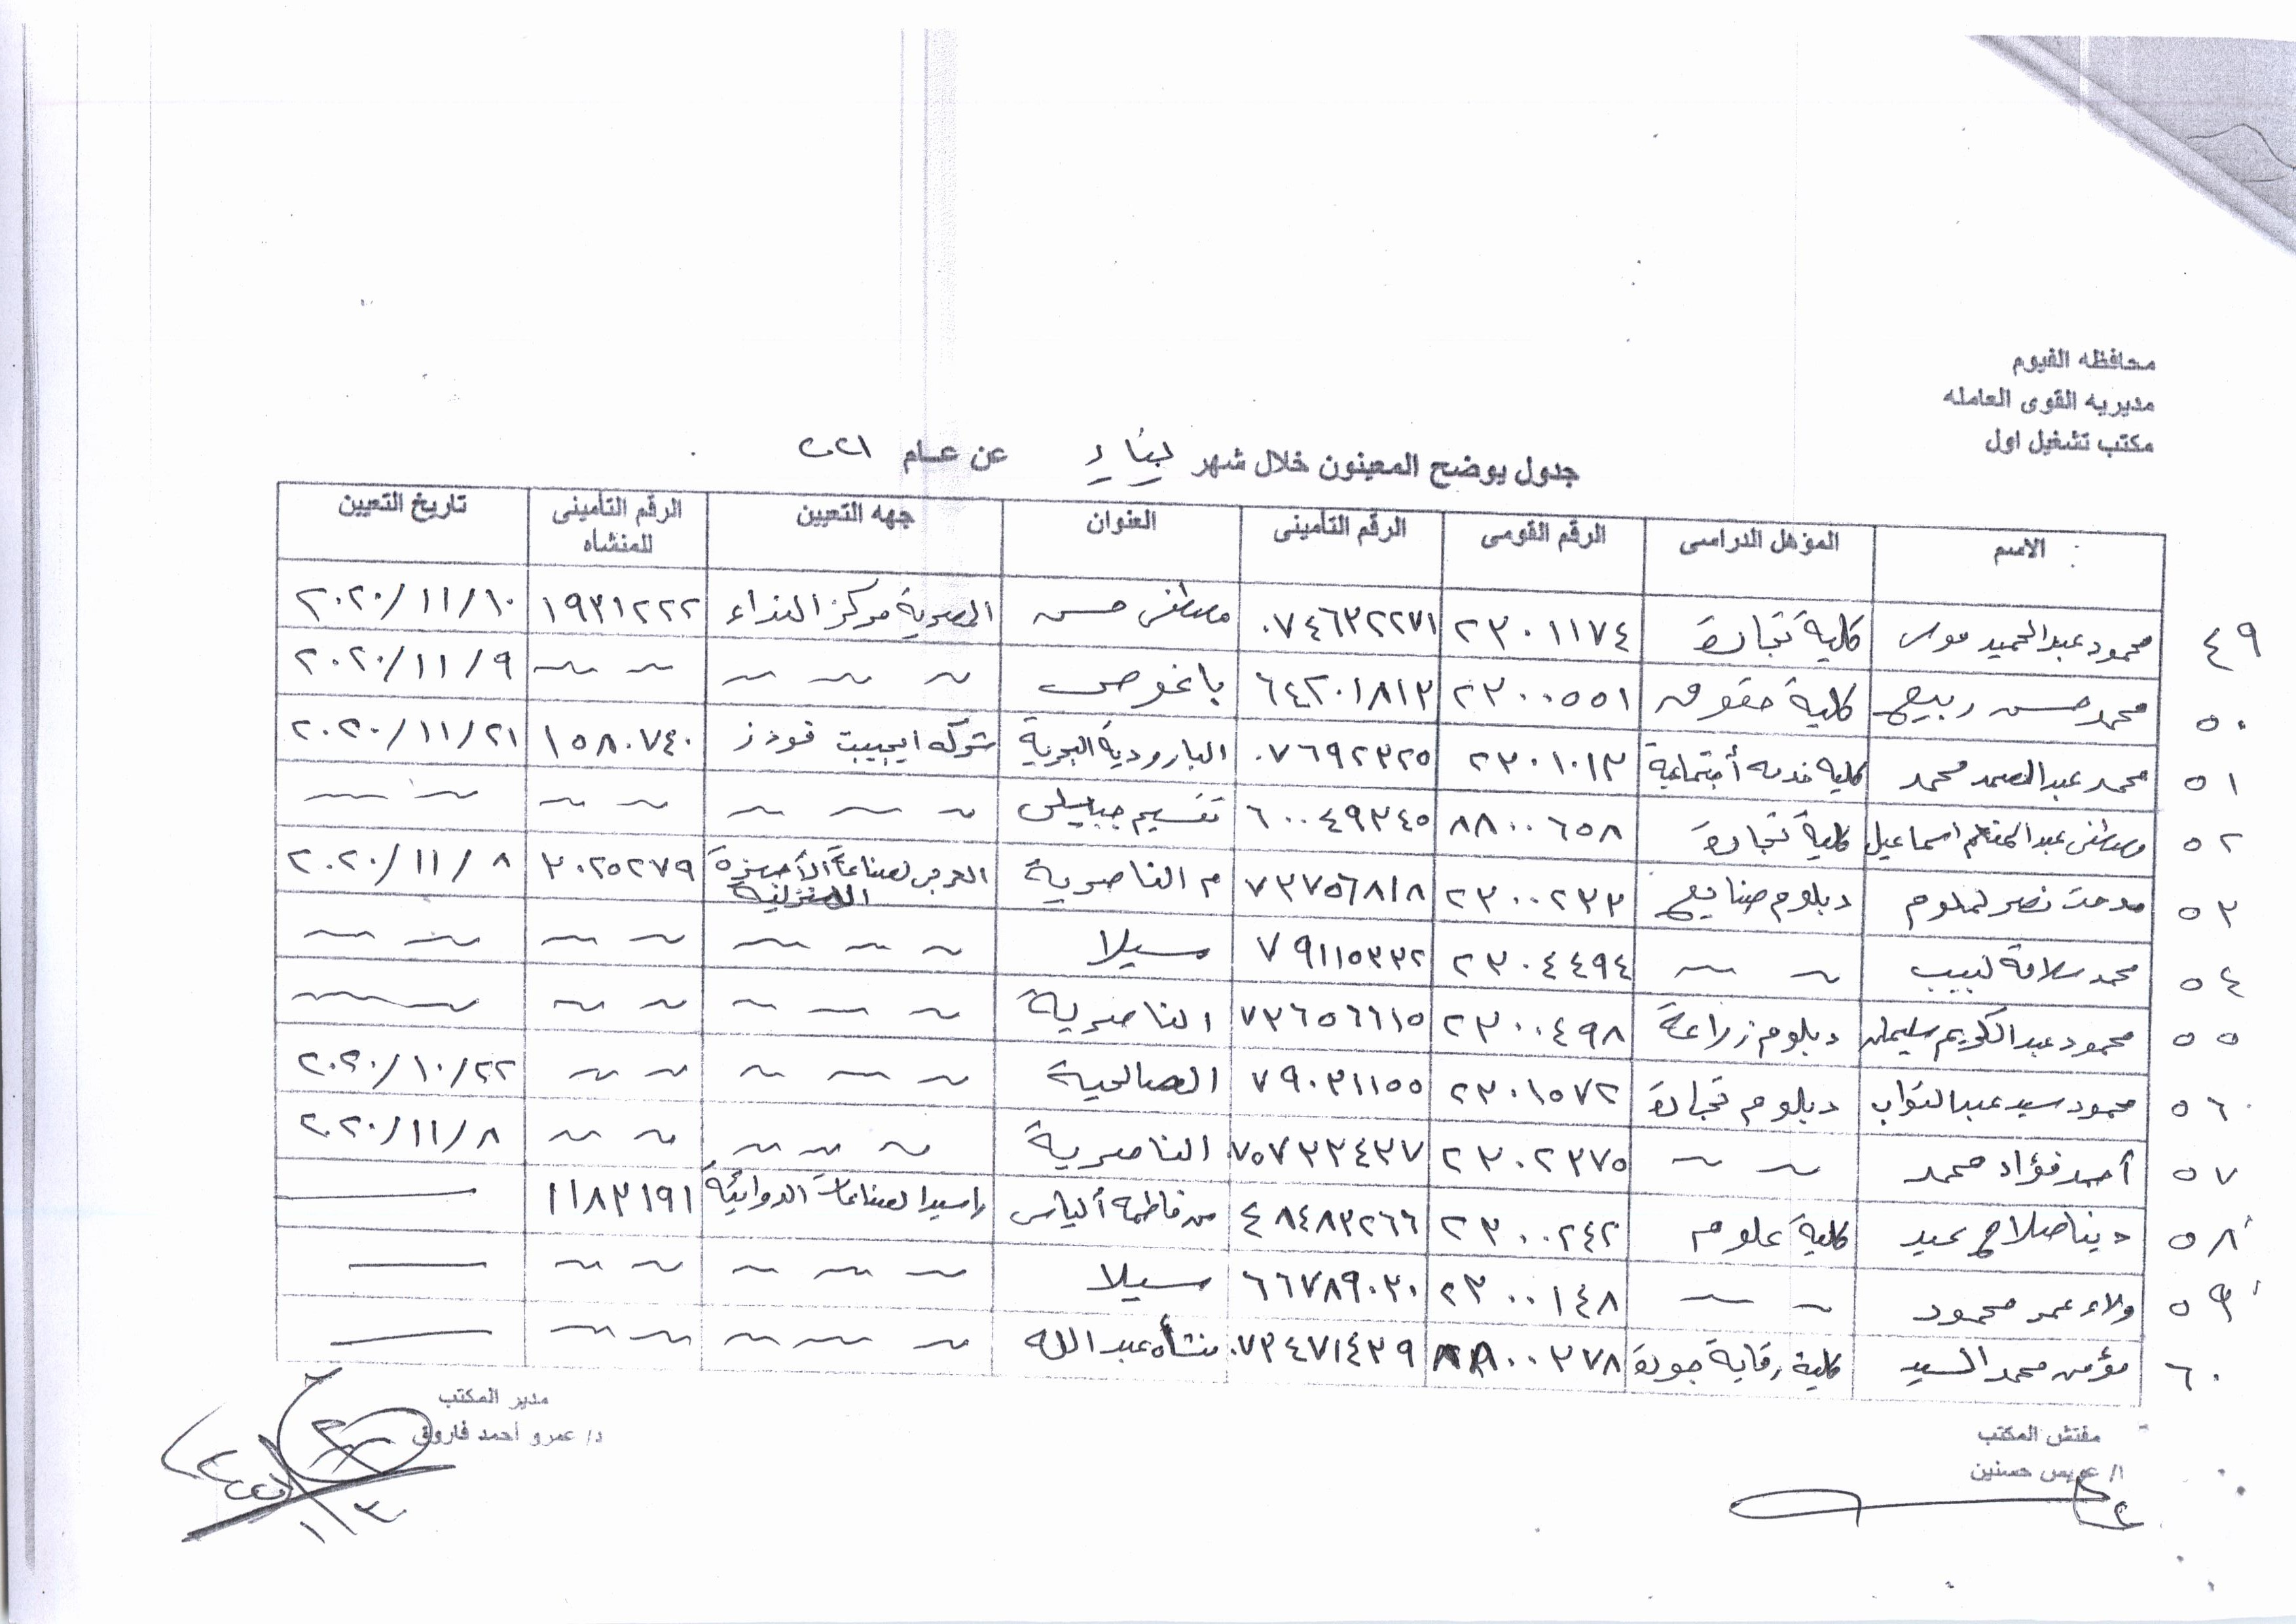 محافظه الفيوم
مديريه القوى العامله
مكتب تشغيل اول
جدول يوضح المعينون خلال شهر يناير عن عام ٢٠٢١
الاسم المؤهل الدراسى الرقم القومى الرقم التأمينى العنوان جهه التعيين الرقم التأمينى للمنشاه تاريخ التعيين
٤٩ محمود عبد الحميد موسى كلية تجارة ٢٣٠١١٧٤ ٠٧٤٦٣٢٢٧١ مصطفى حسن المصرية مركز النداء ١٩٣١٢٢٢ ٢٠٢٠/١١/١٠
٥٠ محمد حسن ربيع كلية حقوق ٢٣٠٠٥٥١ ٦٤٢٠١٨١٣ باغوص ~ ~ ~ ~ ~ ٢٠٢٠/١١/٩
٥١ محمد عبد الصمد محمد كلية خدمه أجتماعية ٢٣٠١٠١٣ ٠٧٦٩٢٣٢٥ البارودية البحرية شركه ايجيبت فودز ١٥٨٠٧٤٠ ٢٠٢٠/١١/٢١
٥٢ مصطفى عبد المنعم اسماعيل كلية تجارة ٨٨٠٠٦٥٨ ٦٠٠٤٩٣٤٥ تقسيم جبيلى ~ ~ ~ ~ ~ ~ ~
٥٣ مدحت نصر لملوم دبلوم صنايع ٢٣٠٠٢٣٣ ٧٣٧٥٦٨١٨ م الناصرية العربى لصناعة الأجهزة المنزلية ٣٠٢٥٢٧٩ ٢٠٢٠/١١/٨
٥٤ محمد سلامة لبيب ~ ~ ٢٣٠٤٤٩٤ ٧٩١١٥٣٣٢ سيلا ~ ~ ~ ~ ~ ~ ~
٥٥ محمود عبد الكريم سليمان دبلوم زراعة ٢٣٠٠٤٩٨ ٧٣٦٥٦٦١٥ الناصرية ~ ~ ~ ~ ~ ~ ~
٥٦ محمود سيد عبد التواب دبلوم تجارة ٢٣٠١٥٧٢ ٧٩٠٣١١٥٥ الصالحية ~ ~ ~ ~ ~ ٢٠٢٠/١٠/٢٢
٥٧ أحمد فؤاد محمد ~ ~ ٢٣٠٢٣٧٥ ٠٧٥٧٣٣٤٣٧ الناصرية ~ ~ ~ ~ ~ ٢٠٢٠/١١/٨
٥٨ دينا صلاح عيد كلية علوم ٢٣٠٠٢٤٢ ٤٨٤٨٣٢٦٦ من فاطمه ألياس راسيدا لصناعات الدوائية ١١٨٣١٩١ —
٥٩ ولاء عمر محمود ~ ~ ٢٣٠٠١٤٨ ٦٦٧٨٩٠٣٠ سيلا ~ ~ ~ ~ ~ —
٦٠ مؤمن محمد السيد كلية رقابة جودة ٨٨٠٠٣٧٨ ٠٧٣٤٧١٤٣٩ منشأه عبد الله ~ ~ ~ ~ ~ —
مفتش المكتب
ا/ عويس حسنين
مدير المكتب
د/ عمرو أحمد فاروق
١/٣٠